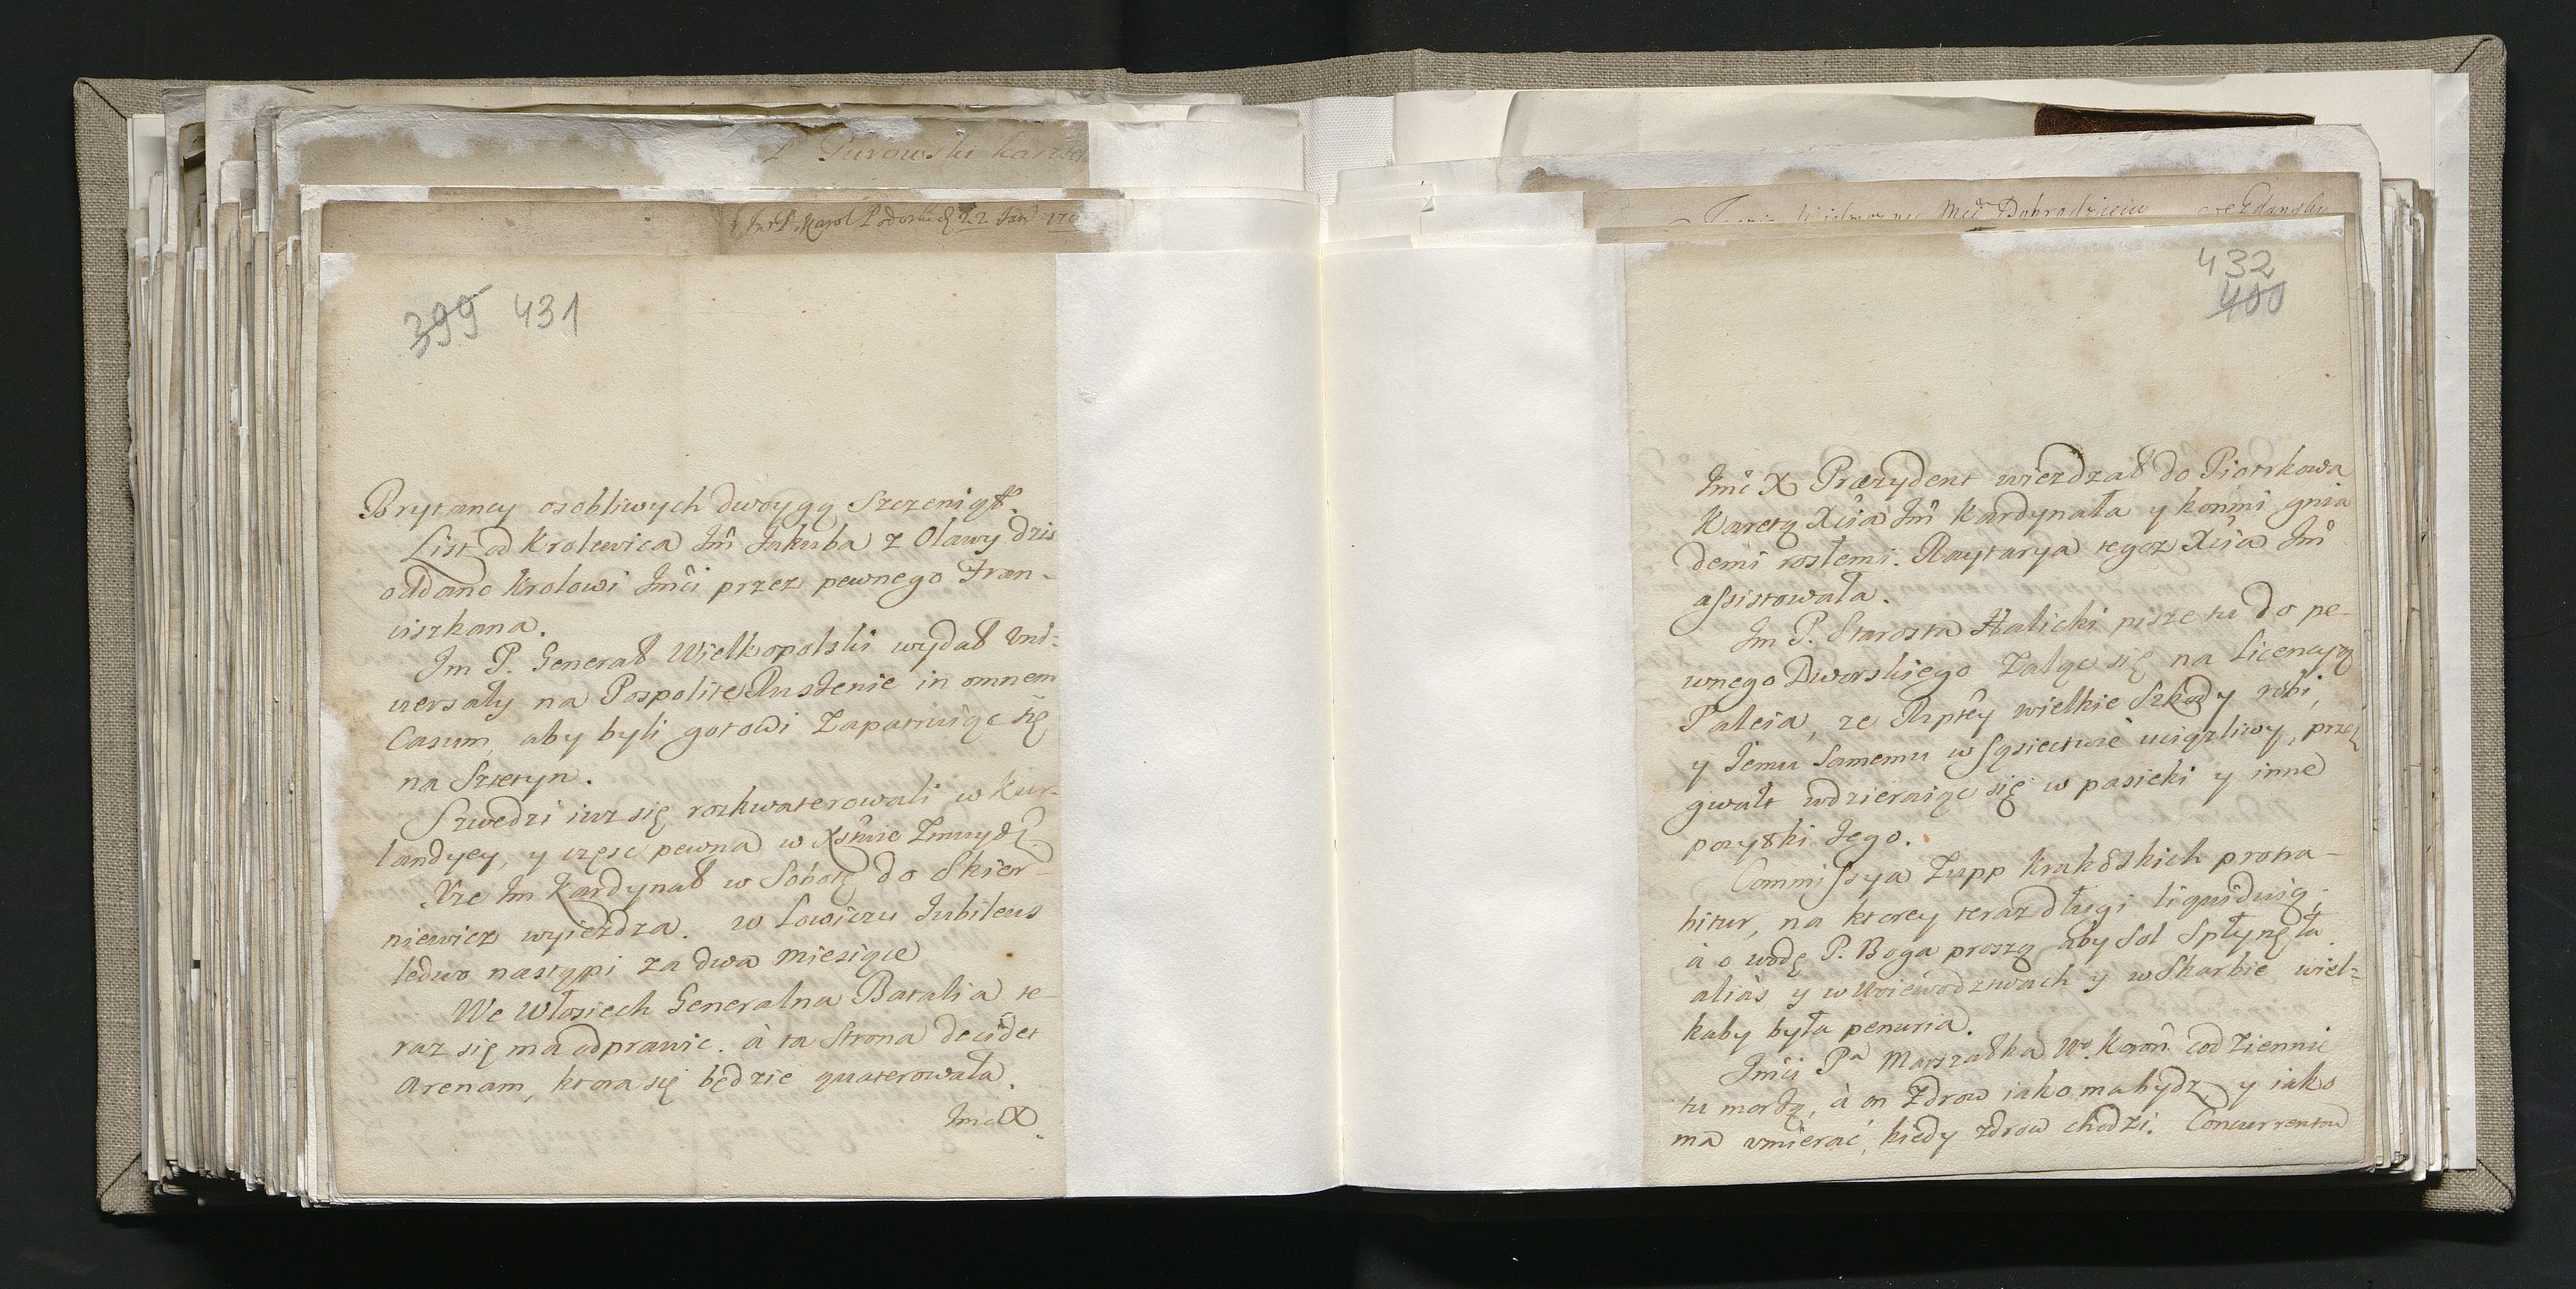 Turowski
Karol
399 431
Brytancy osobliwych dwoygą Szczeniąt.
List od Krolewica Jm̃ Jakuba z Olawy dzis
oddano Krolowi Jmĉi przez pewnego Fran-
ciszkana.
Jm P. Generał Wielkopolski wydał Uni-
wersały na Pospolite Ruszenie in omnem
Casum, aby byli gotowi zapatruiąc się
na Sztetyn.
Szwedzi iuz się rozkwaterowali w Kur-
landyey, y częsc pewna w Xstwie
Xze Jm Kardynał w Sobotę do Skier-
niewicz wyiezdza. w Lowiczu Jubileus
ledwo nastąpi za dwa miesiące
We Włosiech Generalna Batalia te-
raz się ma odprawic. à ta Strona decidet
Arenam, ktora się będzie quaterowała.
Jmc X
Mci Dobrodzieiu
432
400
Jmc̃ X Præzydent wiezdzał do Piotrkowa
Karetą Xcia Jm̃ Kardynała y konmi gnia
demi rosłemi. Raytarya tegoz Xcia Jm̃
assistowała.
Jm P. Starosta Halicki pisze tu do pe-
wnego Dworskiego Zaląc się na Licencyą
Paleia, ze Rzptey wielkie Szkody robi,
y Jemu Samemu w Sąsiectwie uciązliwy, przez
gwałt wdzieraiąc się w pasieki y inne
pozytki Jego.
Commissya Zupp Krakoskich protra-
hitur, na ktorey teraz dlugi liquiduią,
à o wodę P. Boga proszą aby Sol Spłynęła
aliàs y w Woiewodztwach y w Skarbie wiel-
kaby była penuria.
Jmĉi Pa Marszałka Wo. Koron̂ codziennie
tu morzą, à on zdrow iako ma bydz, y iako
ma umierać, kiedy zdrow chodzi. Concurrentow